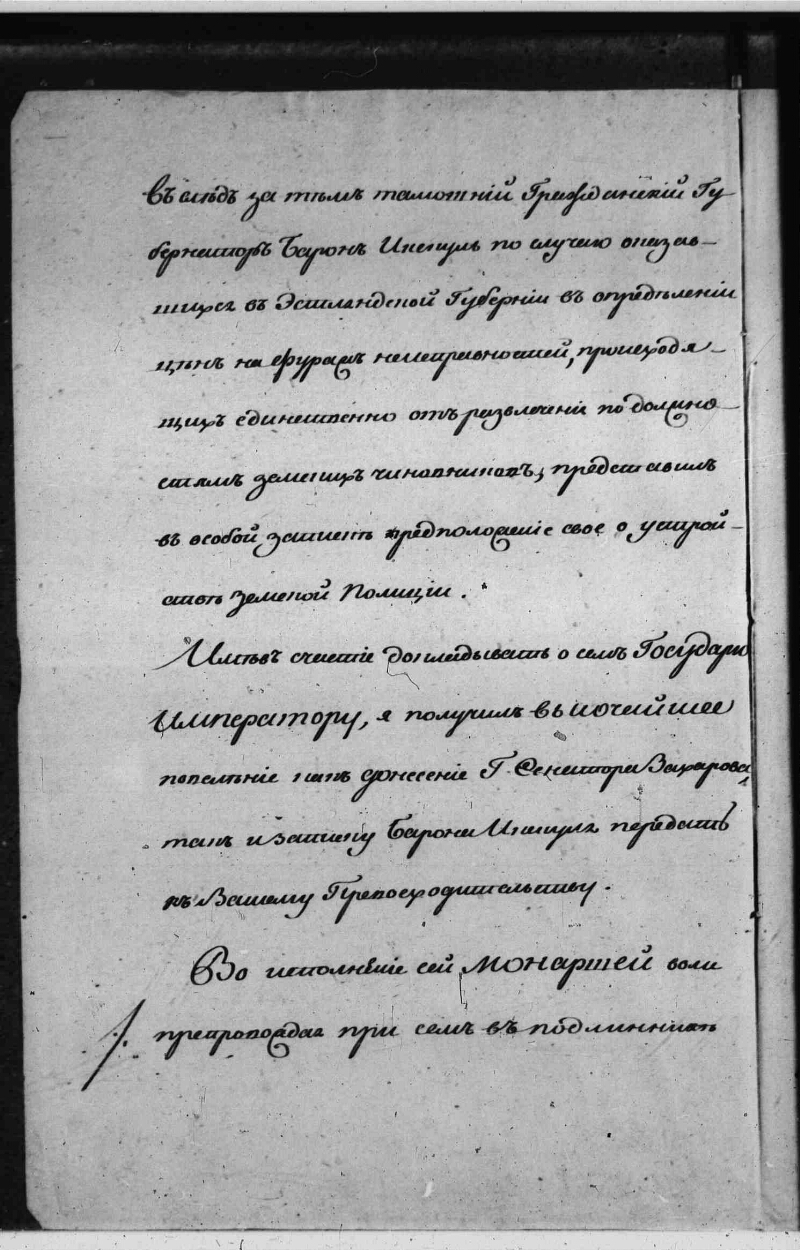 въ слѣдъ за тѣмъ тамошній Гражданскій Гу-
бернаторъ Баронъ Икскуль по случаю оказав-
шихся въ Эстляндской Губерніи въ опредѣленіи
цѣнъ на фуражъ неисправностей, происходя-
щихъ единственно отъ развлеченій по должно-
стямъ земскихъ чиновниковъ, представилъ
въ особой запискѣ предположеніе свое о устрой-
ствѣ Земской Полиціи.
Имѣвъ счастіе докладывать о семъ Государю
Императору, я получилъ высочайшее
повелѣніе какъ донесеніе Г. Сенатора Захарова,
такъ и записку Барона Икскуля передать
къ Вашему Превосходительству.
Во исполненіе сей Монаршей воли
препровождая при семъ въ подлинникѣ